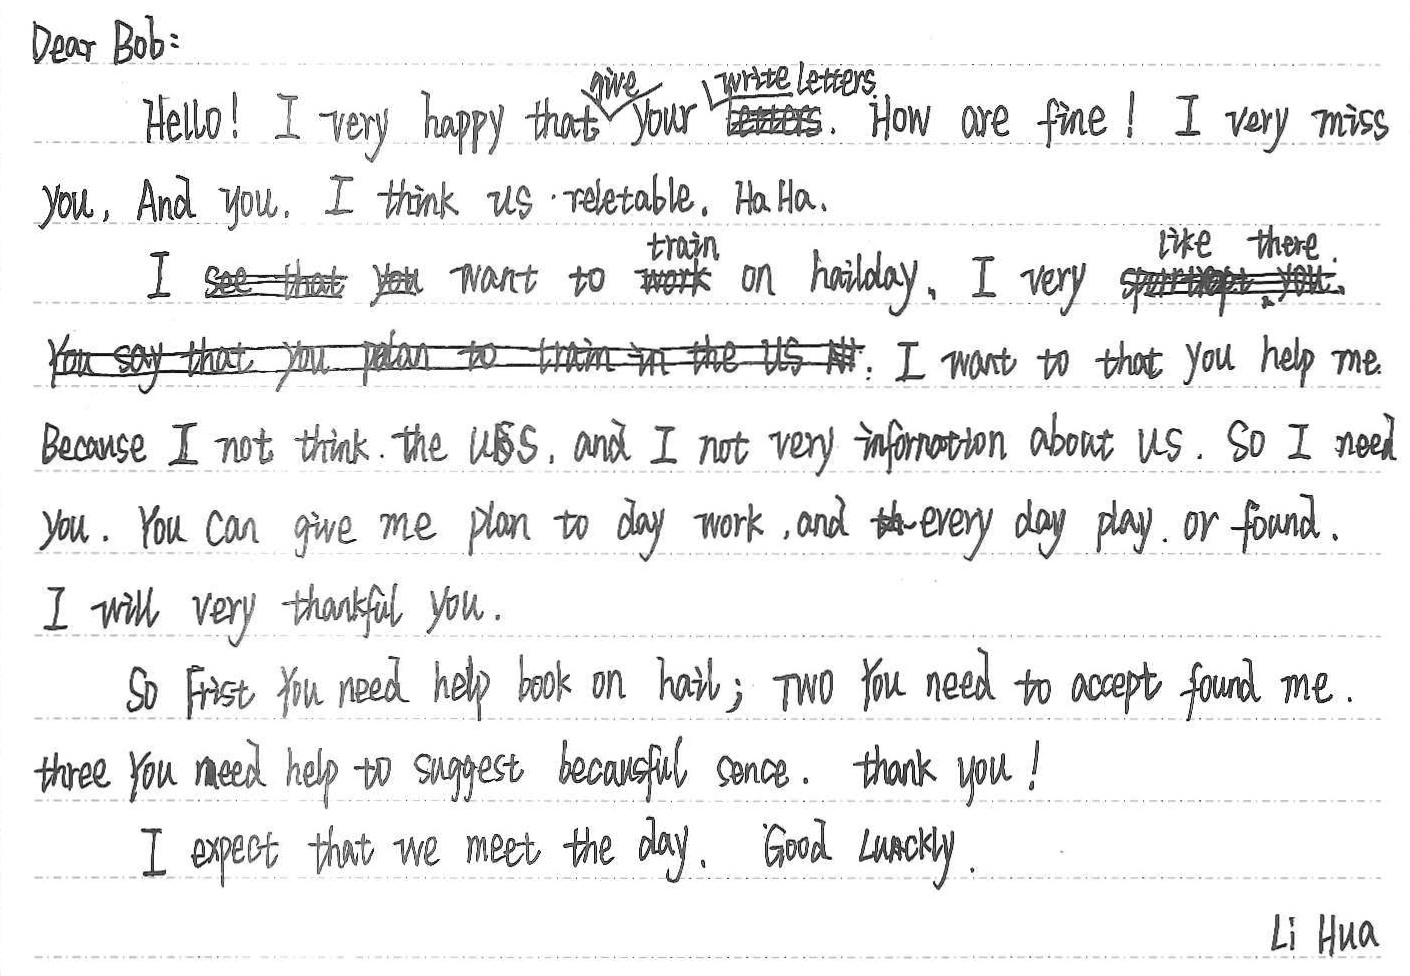 Dear Bob:
Hello! I very happy that give your write letters. How are fine! I very miss
you, And you. I think us reletable. Ha Ha.
I want to train on hailday. I very like there.
I want to that you help me.
Because I not think the US, and I not very infornation about us. So I need
you. You can give me plan to day work, and every day play. or found.
I will very thankful you.
So Frist You need help book on hail; TWO You need to accept found me.
three You need help to suggest becausful sence. thank you!
I expect that we meet the day. Good Luackly.
Li Hua